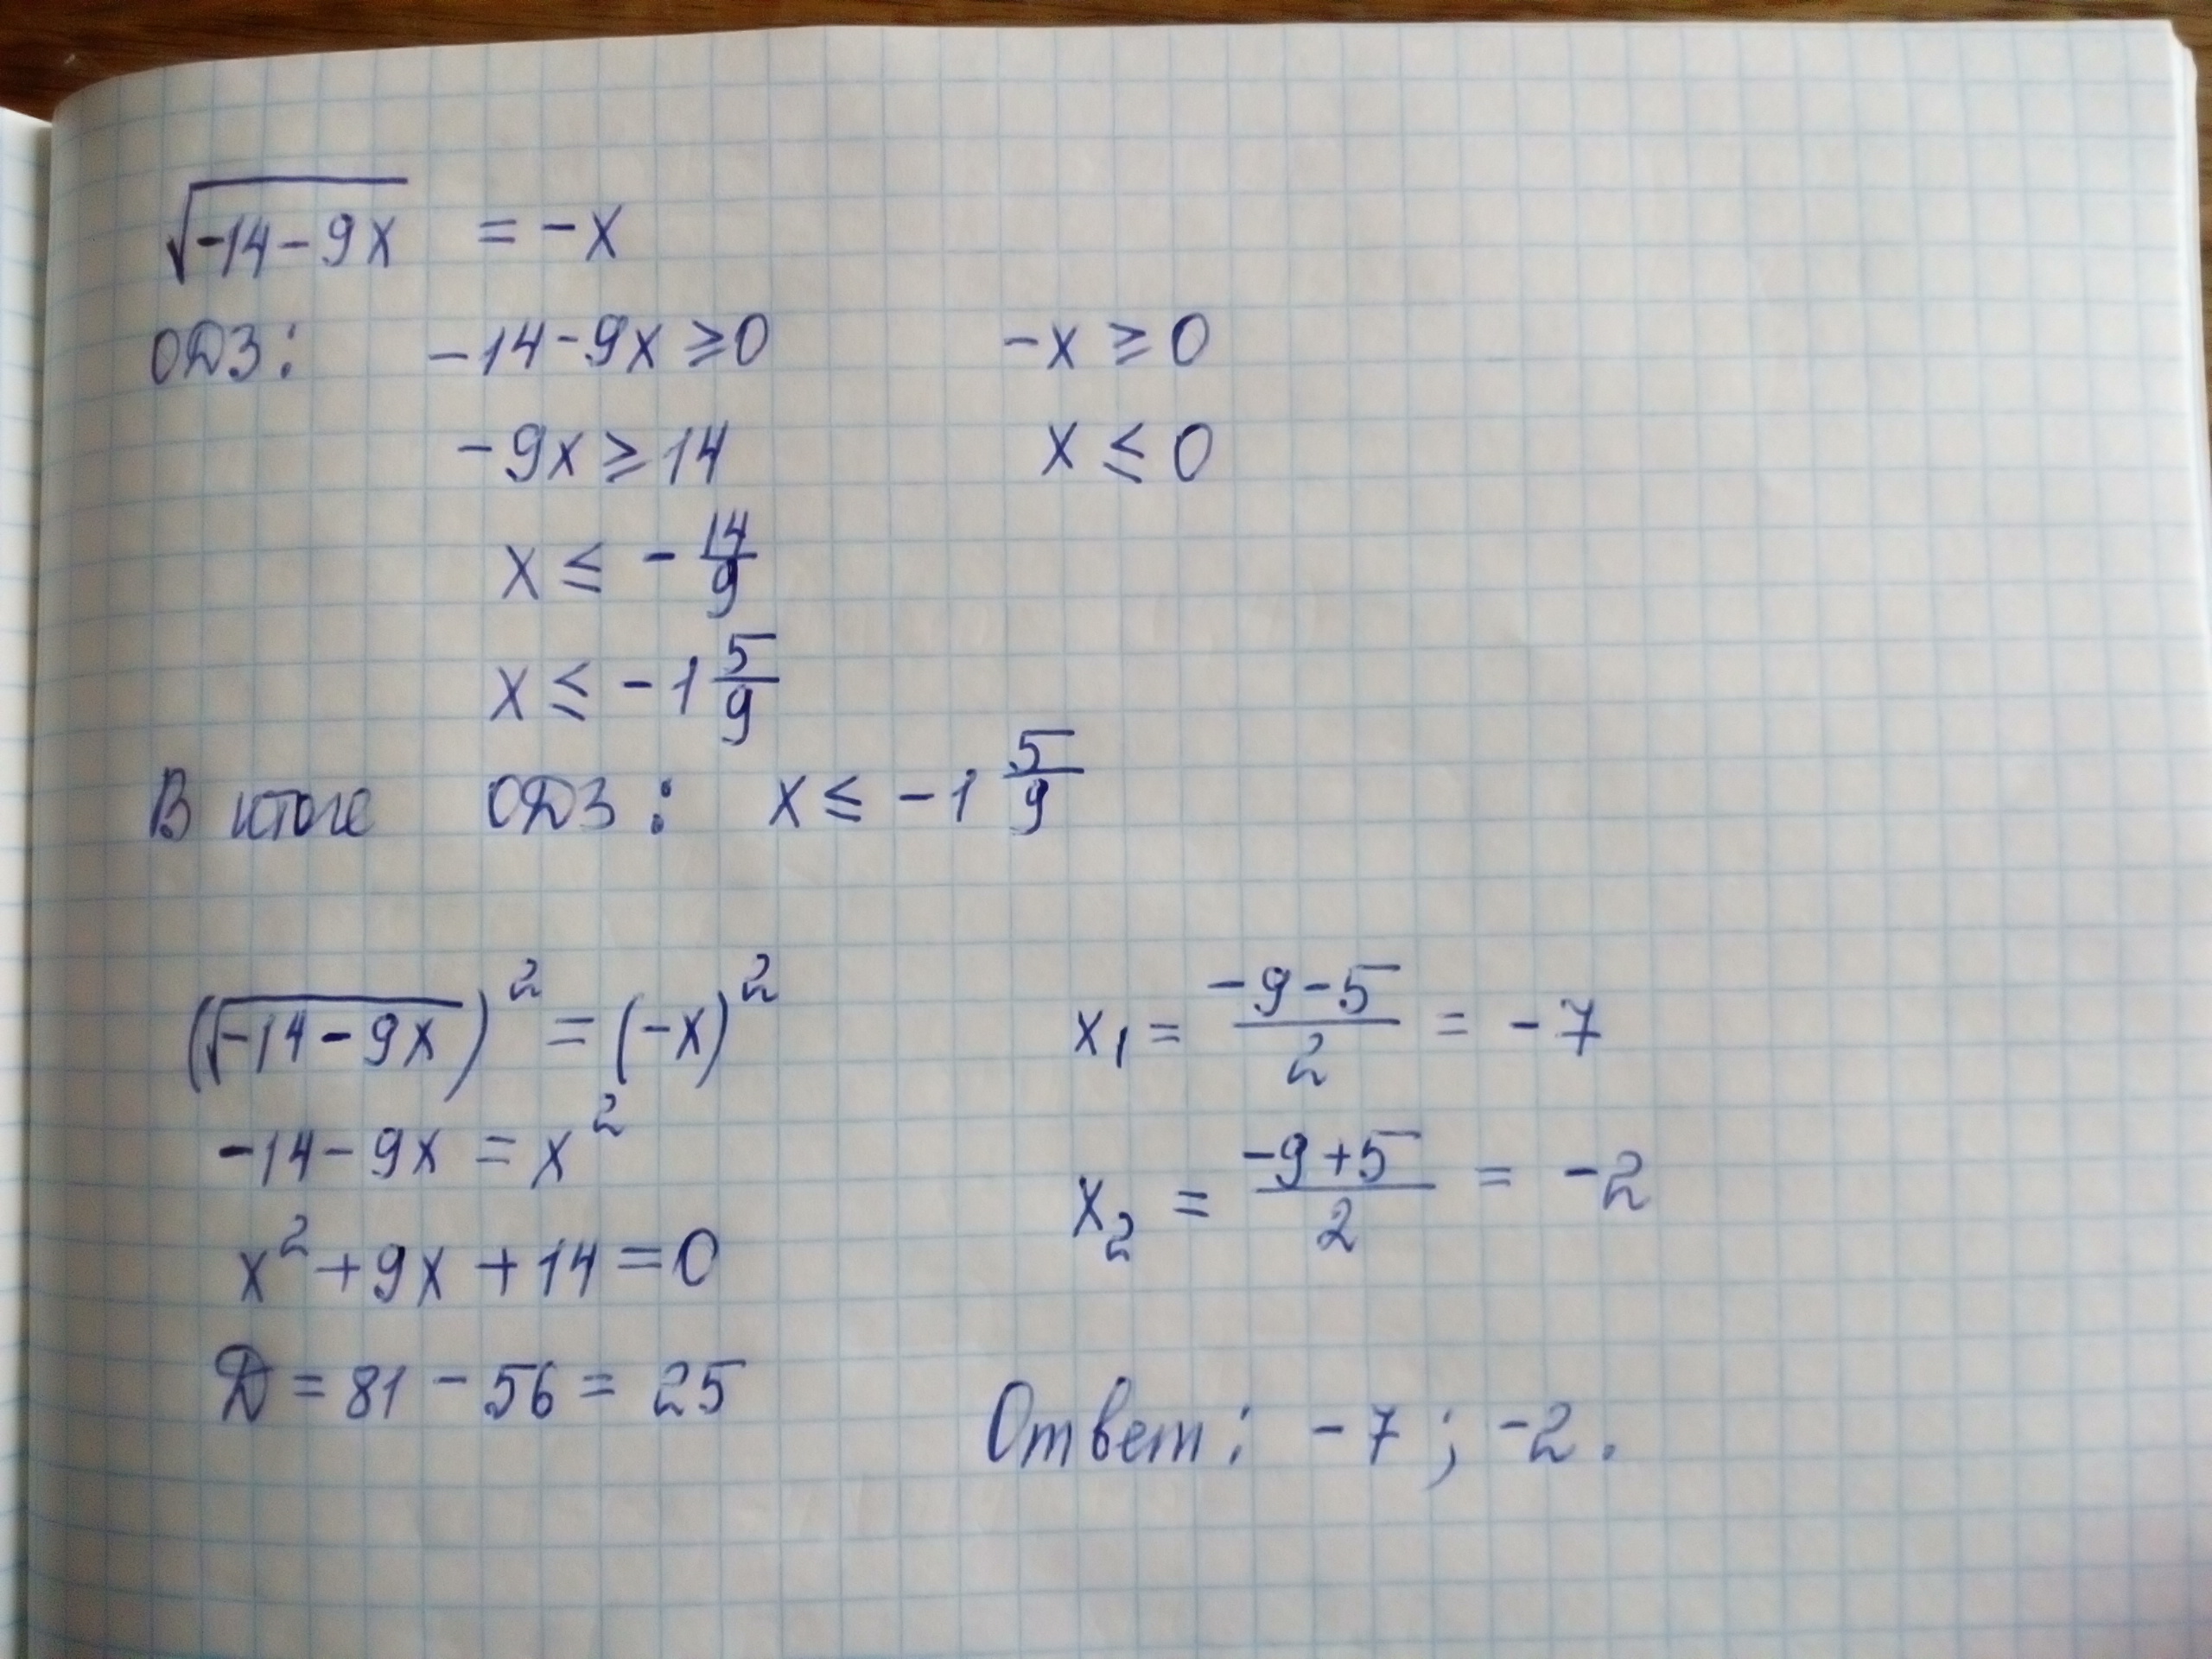 √(-14-9x) = -x
ОДЗ: -14-9x ≥ 0 -x ≥ 0
-9x ≥ 14 x ≤ 0
x ≤ - 14/9
x ≤ -1 5/9
В итоге ОДЗ: x ≤ -1 5/9
(√(-14-9x))² = (-x)²
-14-9x = x²
x²+9x+14=0
D = 81 - 56 = 25
x₁ = (-9-5)/2 = -7
x₂ = (-9+5)/2 = -2
Ответ: -7; -2.